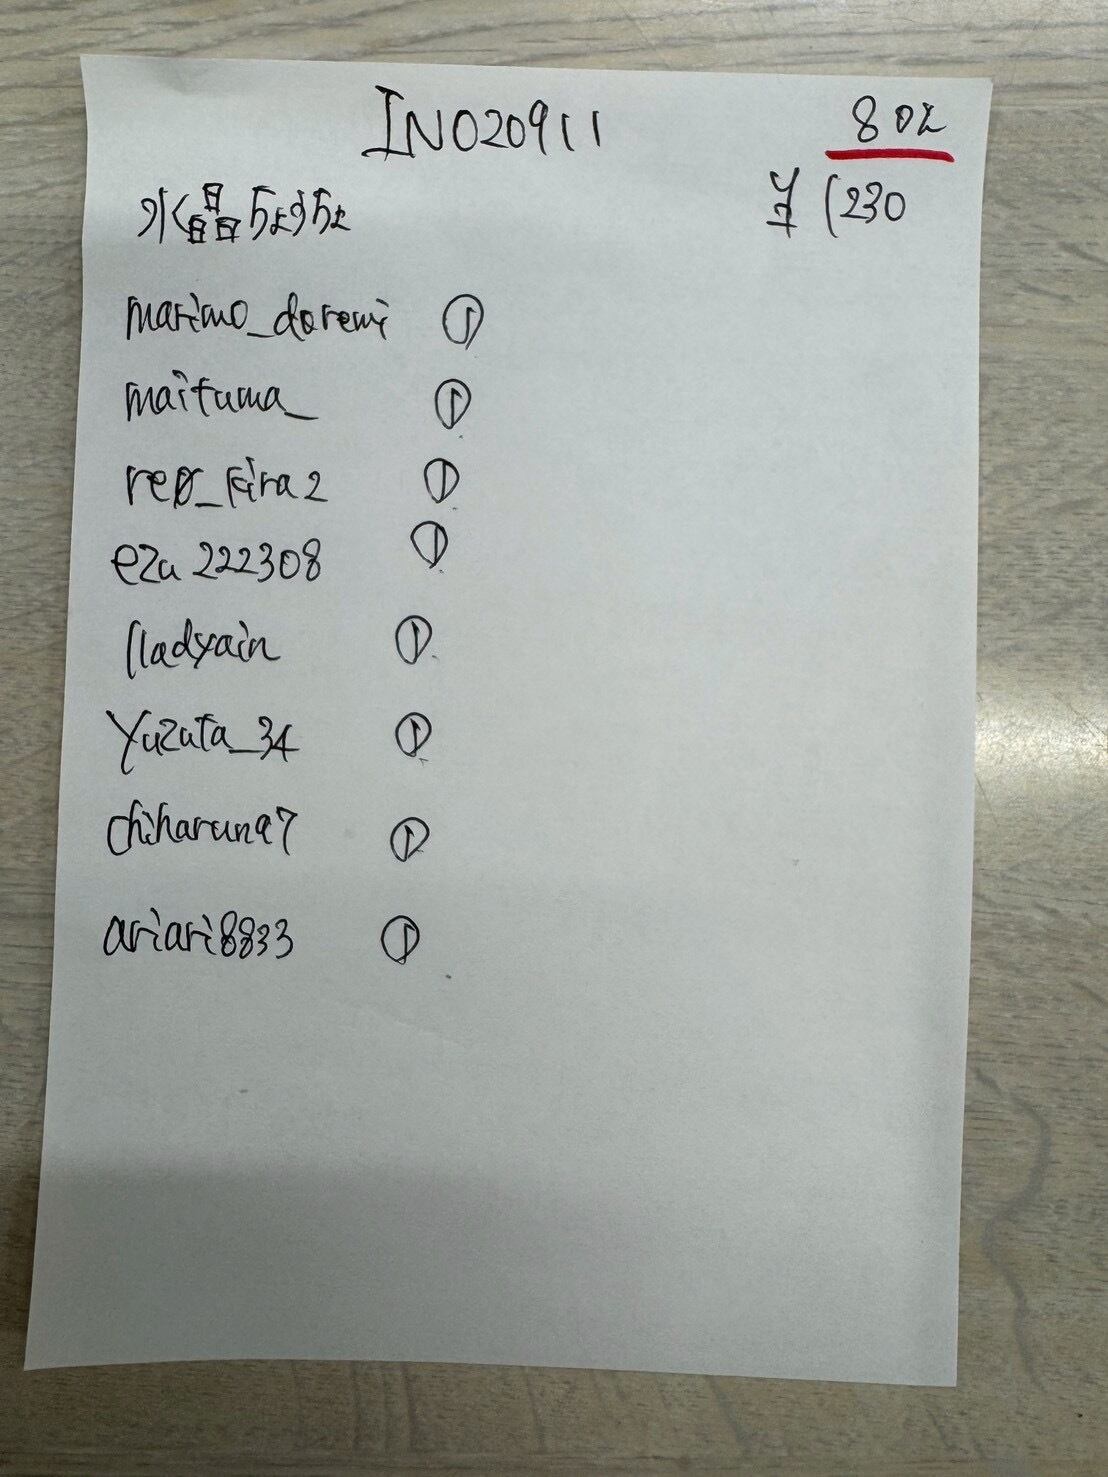 INO20911 80L
水晶ちょうちょ (230
marimo_doremi ①
maituma_ ①
①
eza222308 ①
lladyain ①
Yuzuta_34 ①
chiharuna7 ①
ariari8833 ①